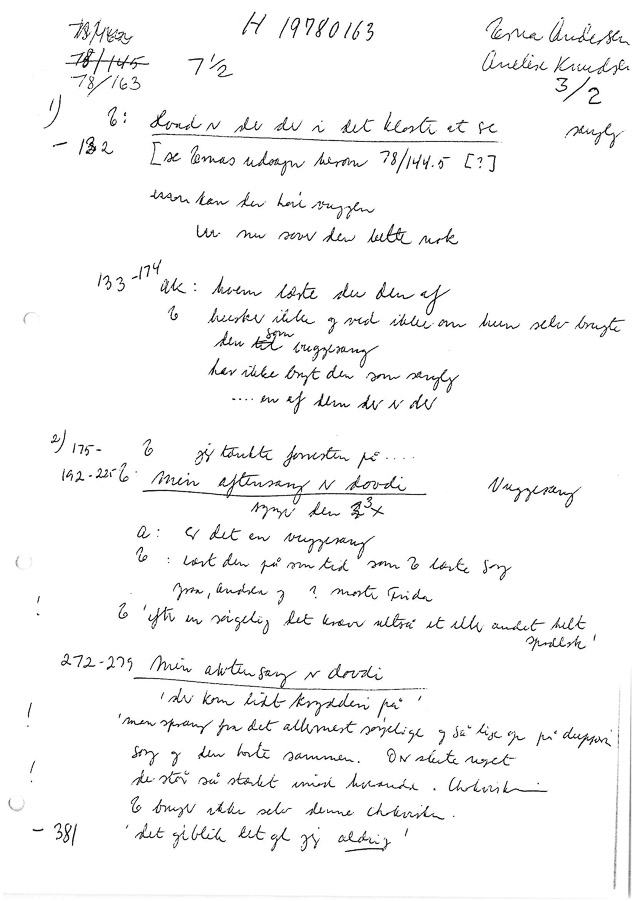 H 19780163
78/142
78/145
78/163
7 1/2
Erna Andersen
Anelise Knudsen
3/2
1) E: Hvad er der der i det kloste at se
sangleg
- 132 [se Ernas udsagn herom 78/144.5 [?]
man kan der høre vuggen
nu sover den lille nok
133-174 AK: hvem lærte du den af
E husker ikke og ved ikke om hun selv brugte
den til som vuggesang
har ikke brugt den som sangleg
.... en af dem der er der
2) 175- E jeg tænkte forresten på ....
192-225 E. Min aftensang er dovdi
Vuggesang
synger den 3x
A: er det en vuggesang
E: lært den på sin tid som E lærte Sorg
fra, Andrea og ? moster Frida
! E 'efter en sørgelig det kræver altså et eller andet helt
specielt'
272-279 Min aftensang er dovdi
'der kom lidt krydderi på'
! 'man sprang fra det allermest sørgelige og så lige op på
sorg og den korte sammen. Der skete noget
! de står så stærkt imod hinanden.
E bruger ikke selv denne
- 381 'det øjeblik let gl jeg aldrig'